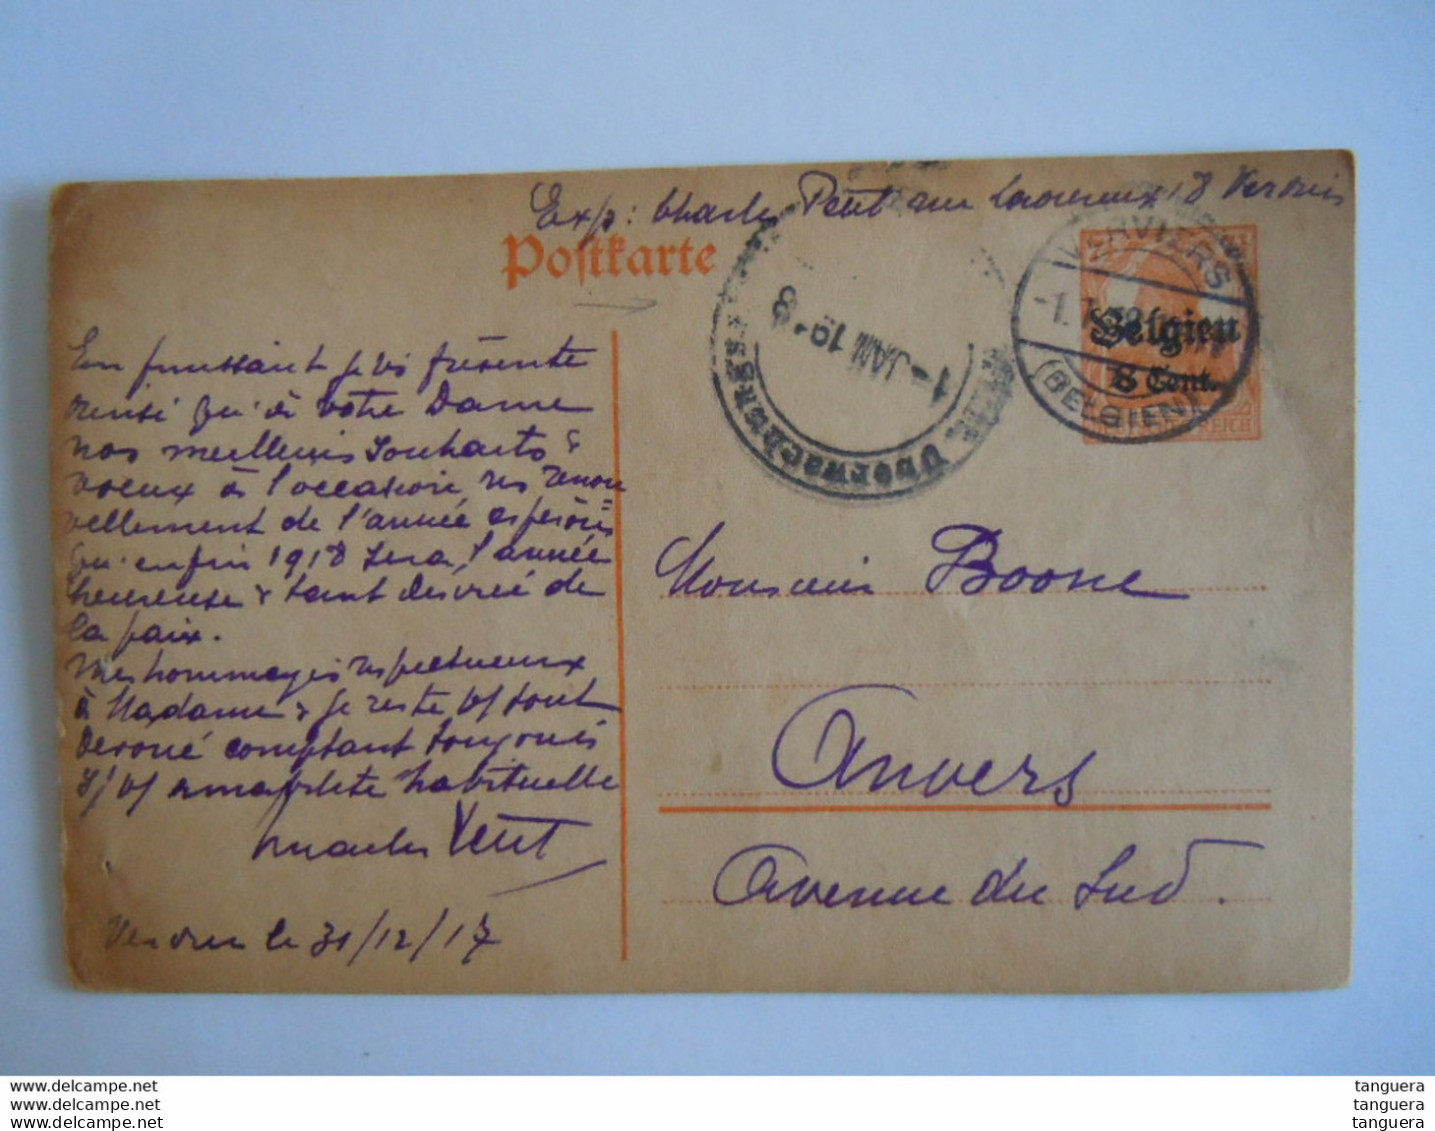 Exp: Charles Pent rue Laoureux 18 Verviers
Postkarte
VERVIERS
-1.
(BELGIEN)
Belgien
8 Cent.
REICH
1 - JAN 19 8
Überwachungs
En puissant je vs présente
ainsi qu'à votre Dame
nos meilleurs souhaits &
voeux à l'occasion du renou
vellement de l'année espérons
qu'enfin 1918 sera l'année
heureuse & tant désirée de
la paix.
Mes hommages respectueux
à Madame & je reste vs tout
dévoué comptant toujours
s/ vs amabilité habituelle
Charles Pent
Verviers le 31/12/17
Monsieur Boone
Anvers
Avenue du Sud.
www.delcampe.net
www.delcampe.net
www.delcampe.net
tanguera
tanguera
tanguera